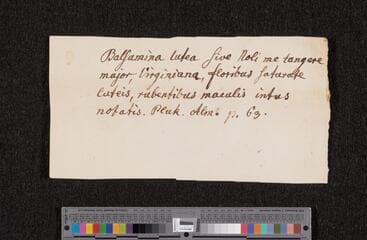 Balsamina lutea sive Noli me tangere
major, Virginiana, floribus saturate
luteis, rubentibus maculis intus
notatis. Pluk. Alm. p. 63.